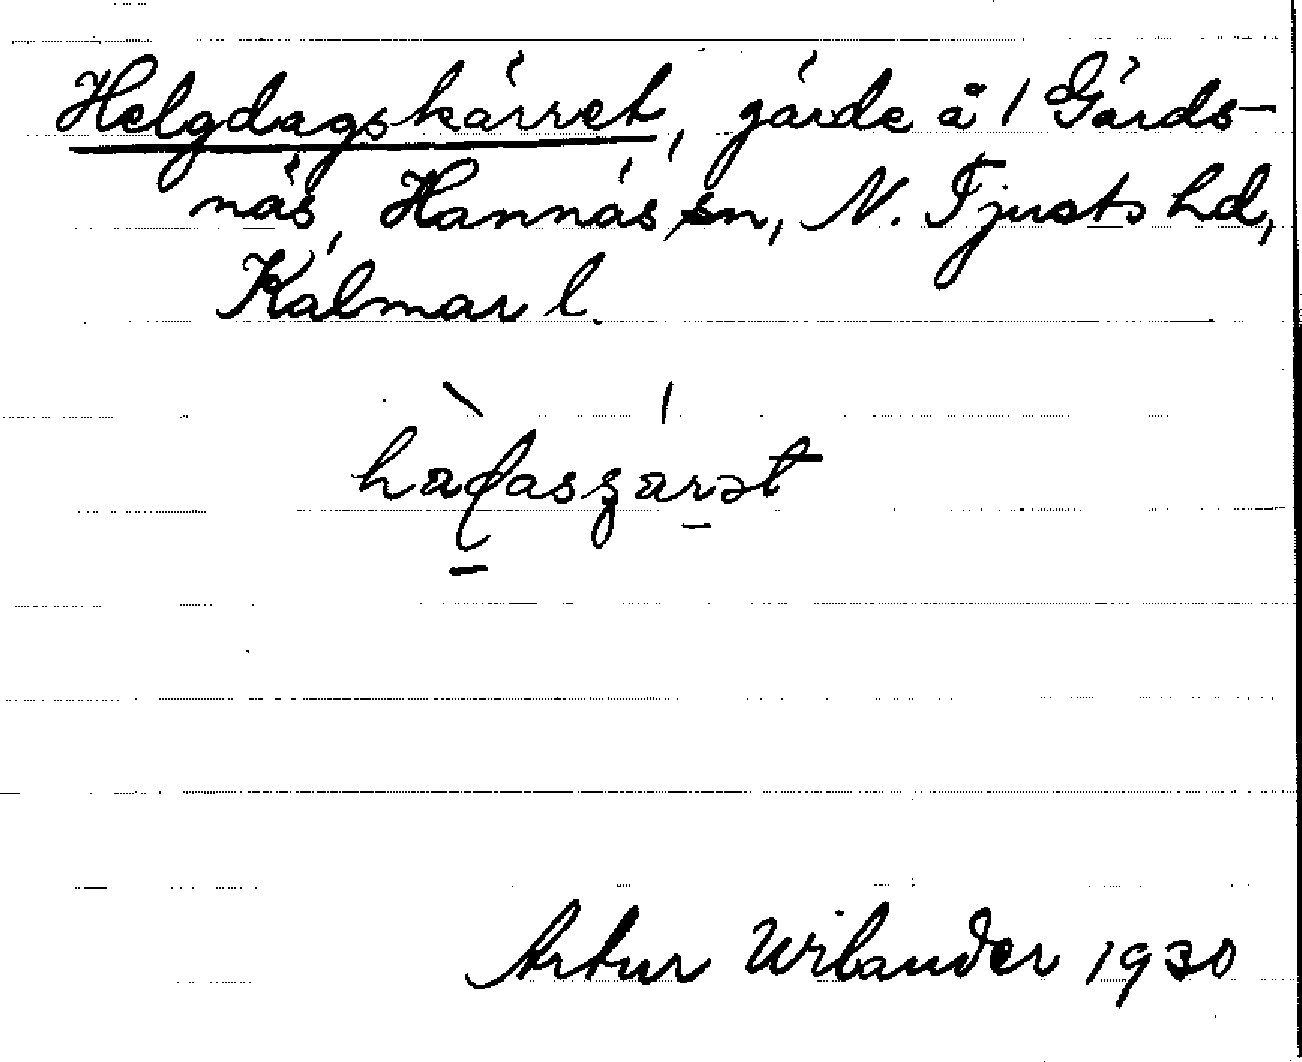 Helgdagskärret, gärde å 1 Gärds-
näs, Hannäs sn, N. Tjusts hd,
Kalmar l.
Artur Wilander 1930